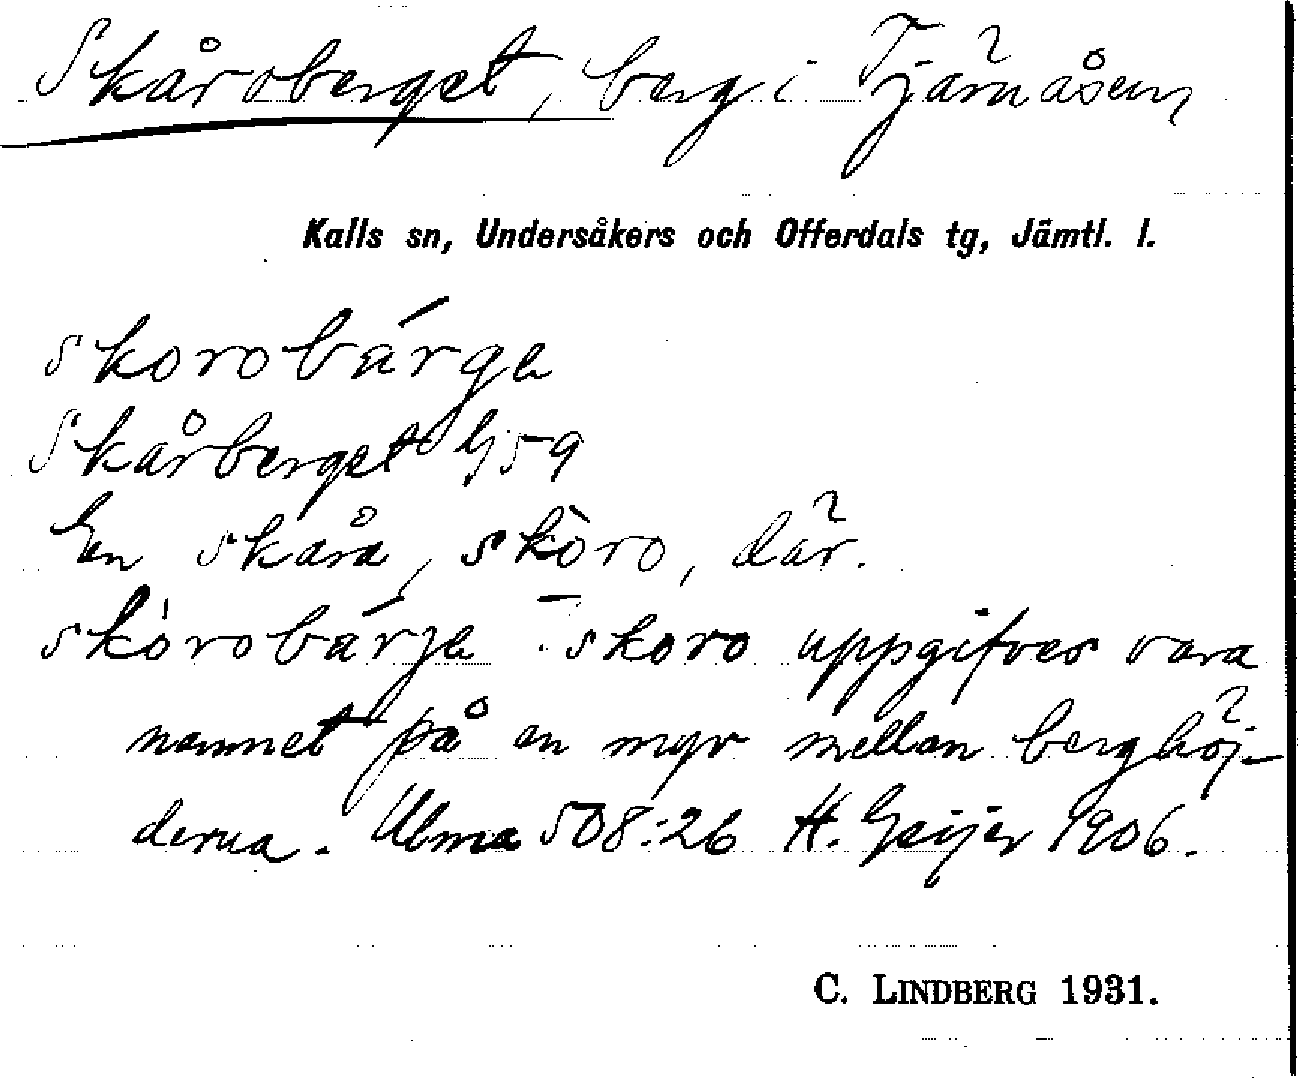 Skåroberget, berg i Tjärnåsen
Kalls sn, Undersåkers och Offerdals tg, Jämtl. l.
skorobárga
Skårberget G 59
En skåra, skòro, där.
skórobárja - skoro uppgifves vara
namnet på en myr mellan berghöj-
derna. Ulma 508:26 H. Geijer 1906.
C. LINDBERG 1931.